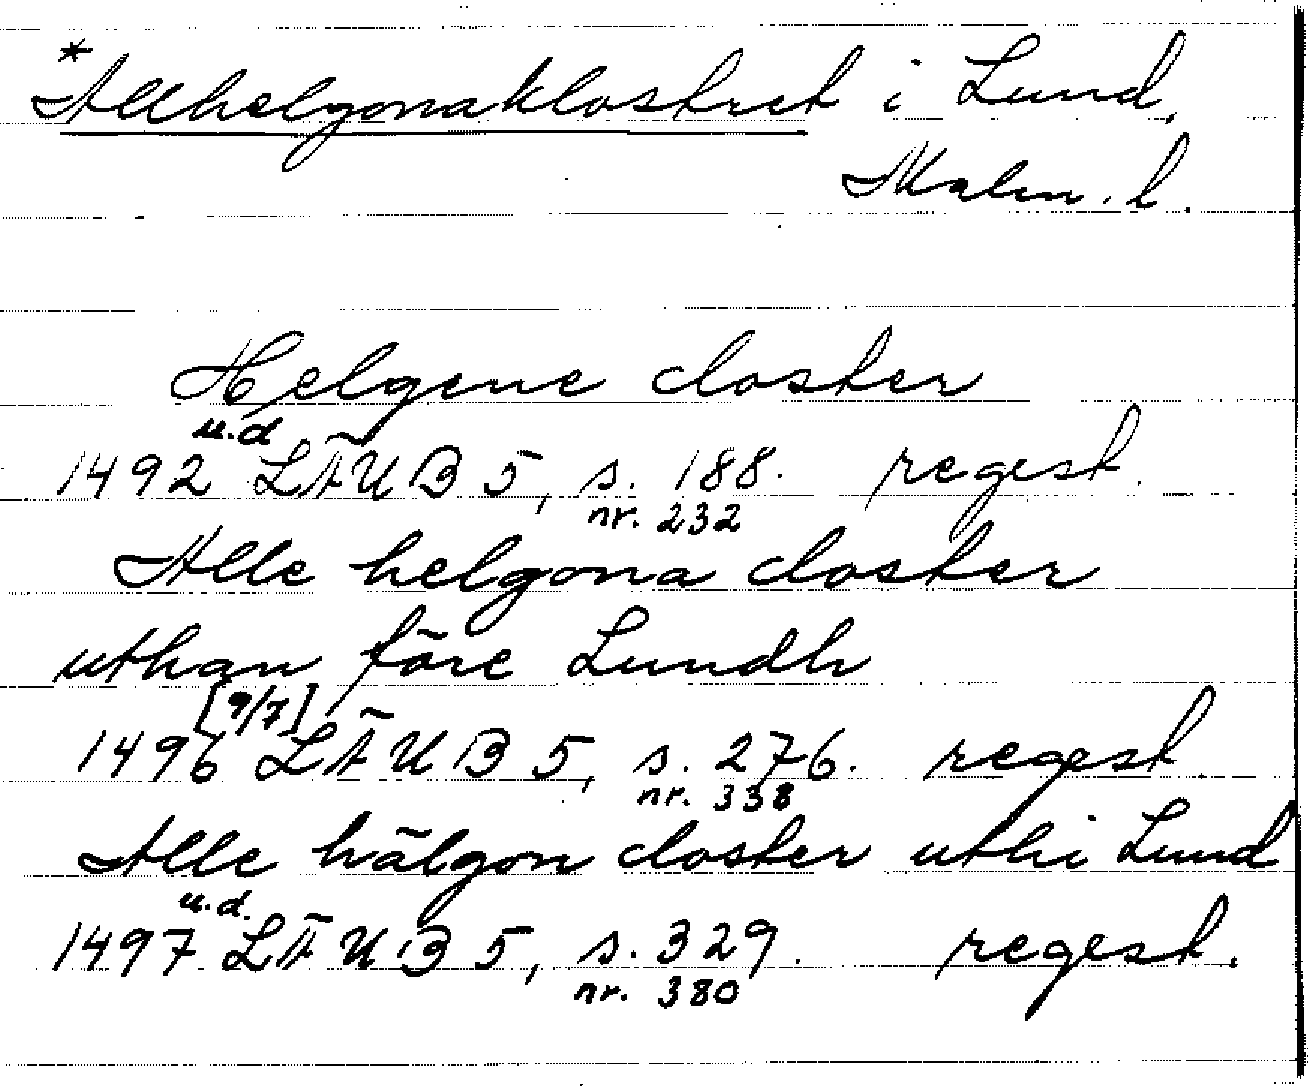 *Allhelgonaklostret i Lund,
Malm. l.
Helgene closter
u.d
1492 LÄUB 5, s. 188. regest.
nr. 232
Alle helgona closter
uthan före Lundh
[9/7]
1496 LÄUB 5, s. 276. regest.
nr. 338
Alle hälgon closter uthi Lund
u.d.
1497 LÄUB 5, s. 329. regest.
nr. 380